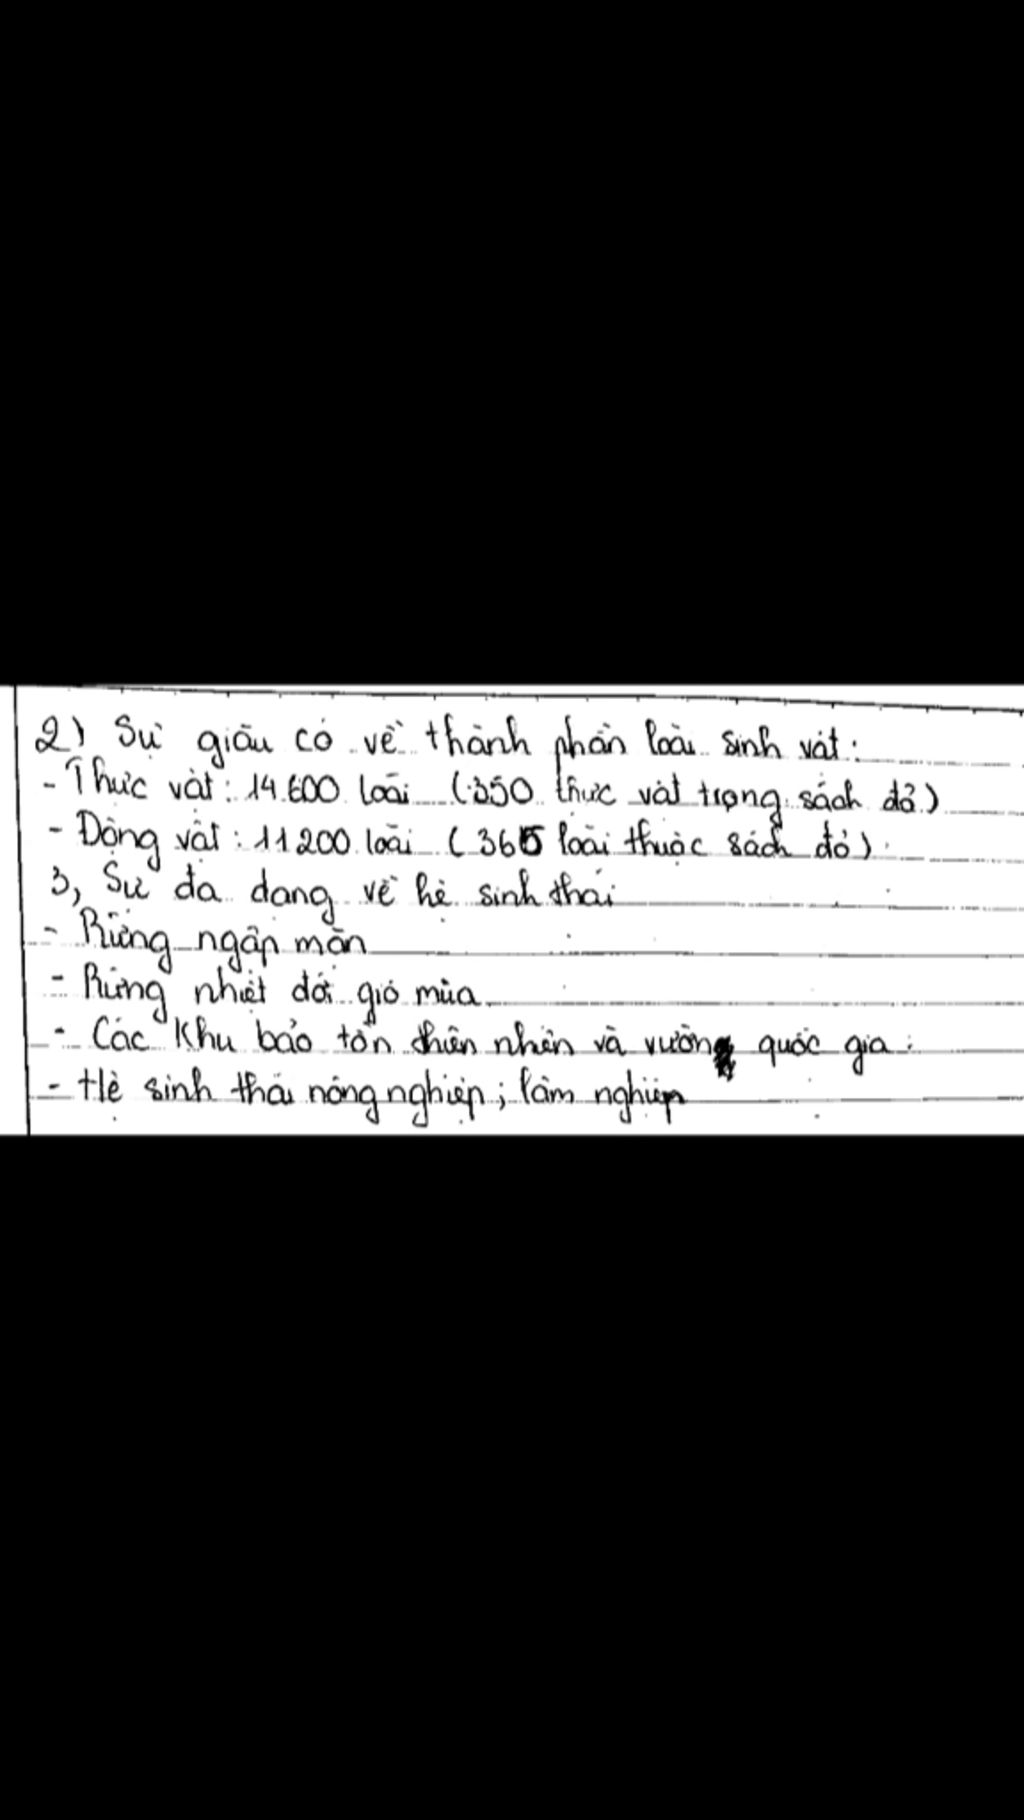 2) Sự giàu có về thành phần loài sinh vật:
- Thực vật: 14.600 loài (350 thực vật trong sách đỏ)
- Động vật: 11200 loài (365 loài thuộc sách đỏ).
3, Sự đa dạng về hệ sinh thái
- Rừng ngập mặn
- Rừng nhiệt đới gió mùa
- Các khu bảo tồn thiên nhiên và vườn quốc gia.
- Hệ sinh thái nông nghiệp; lâm nghiệp